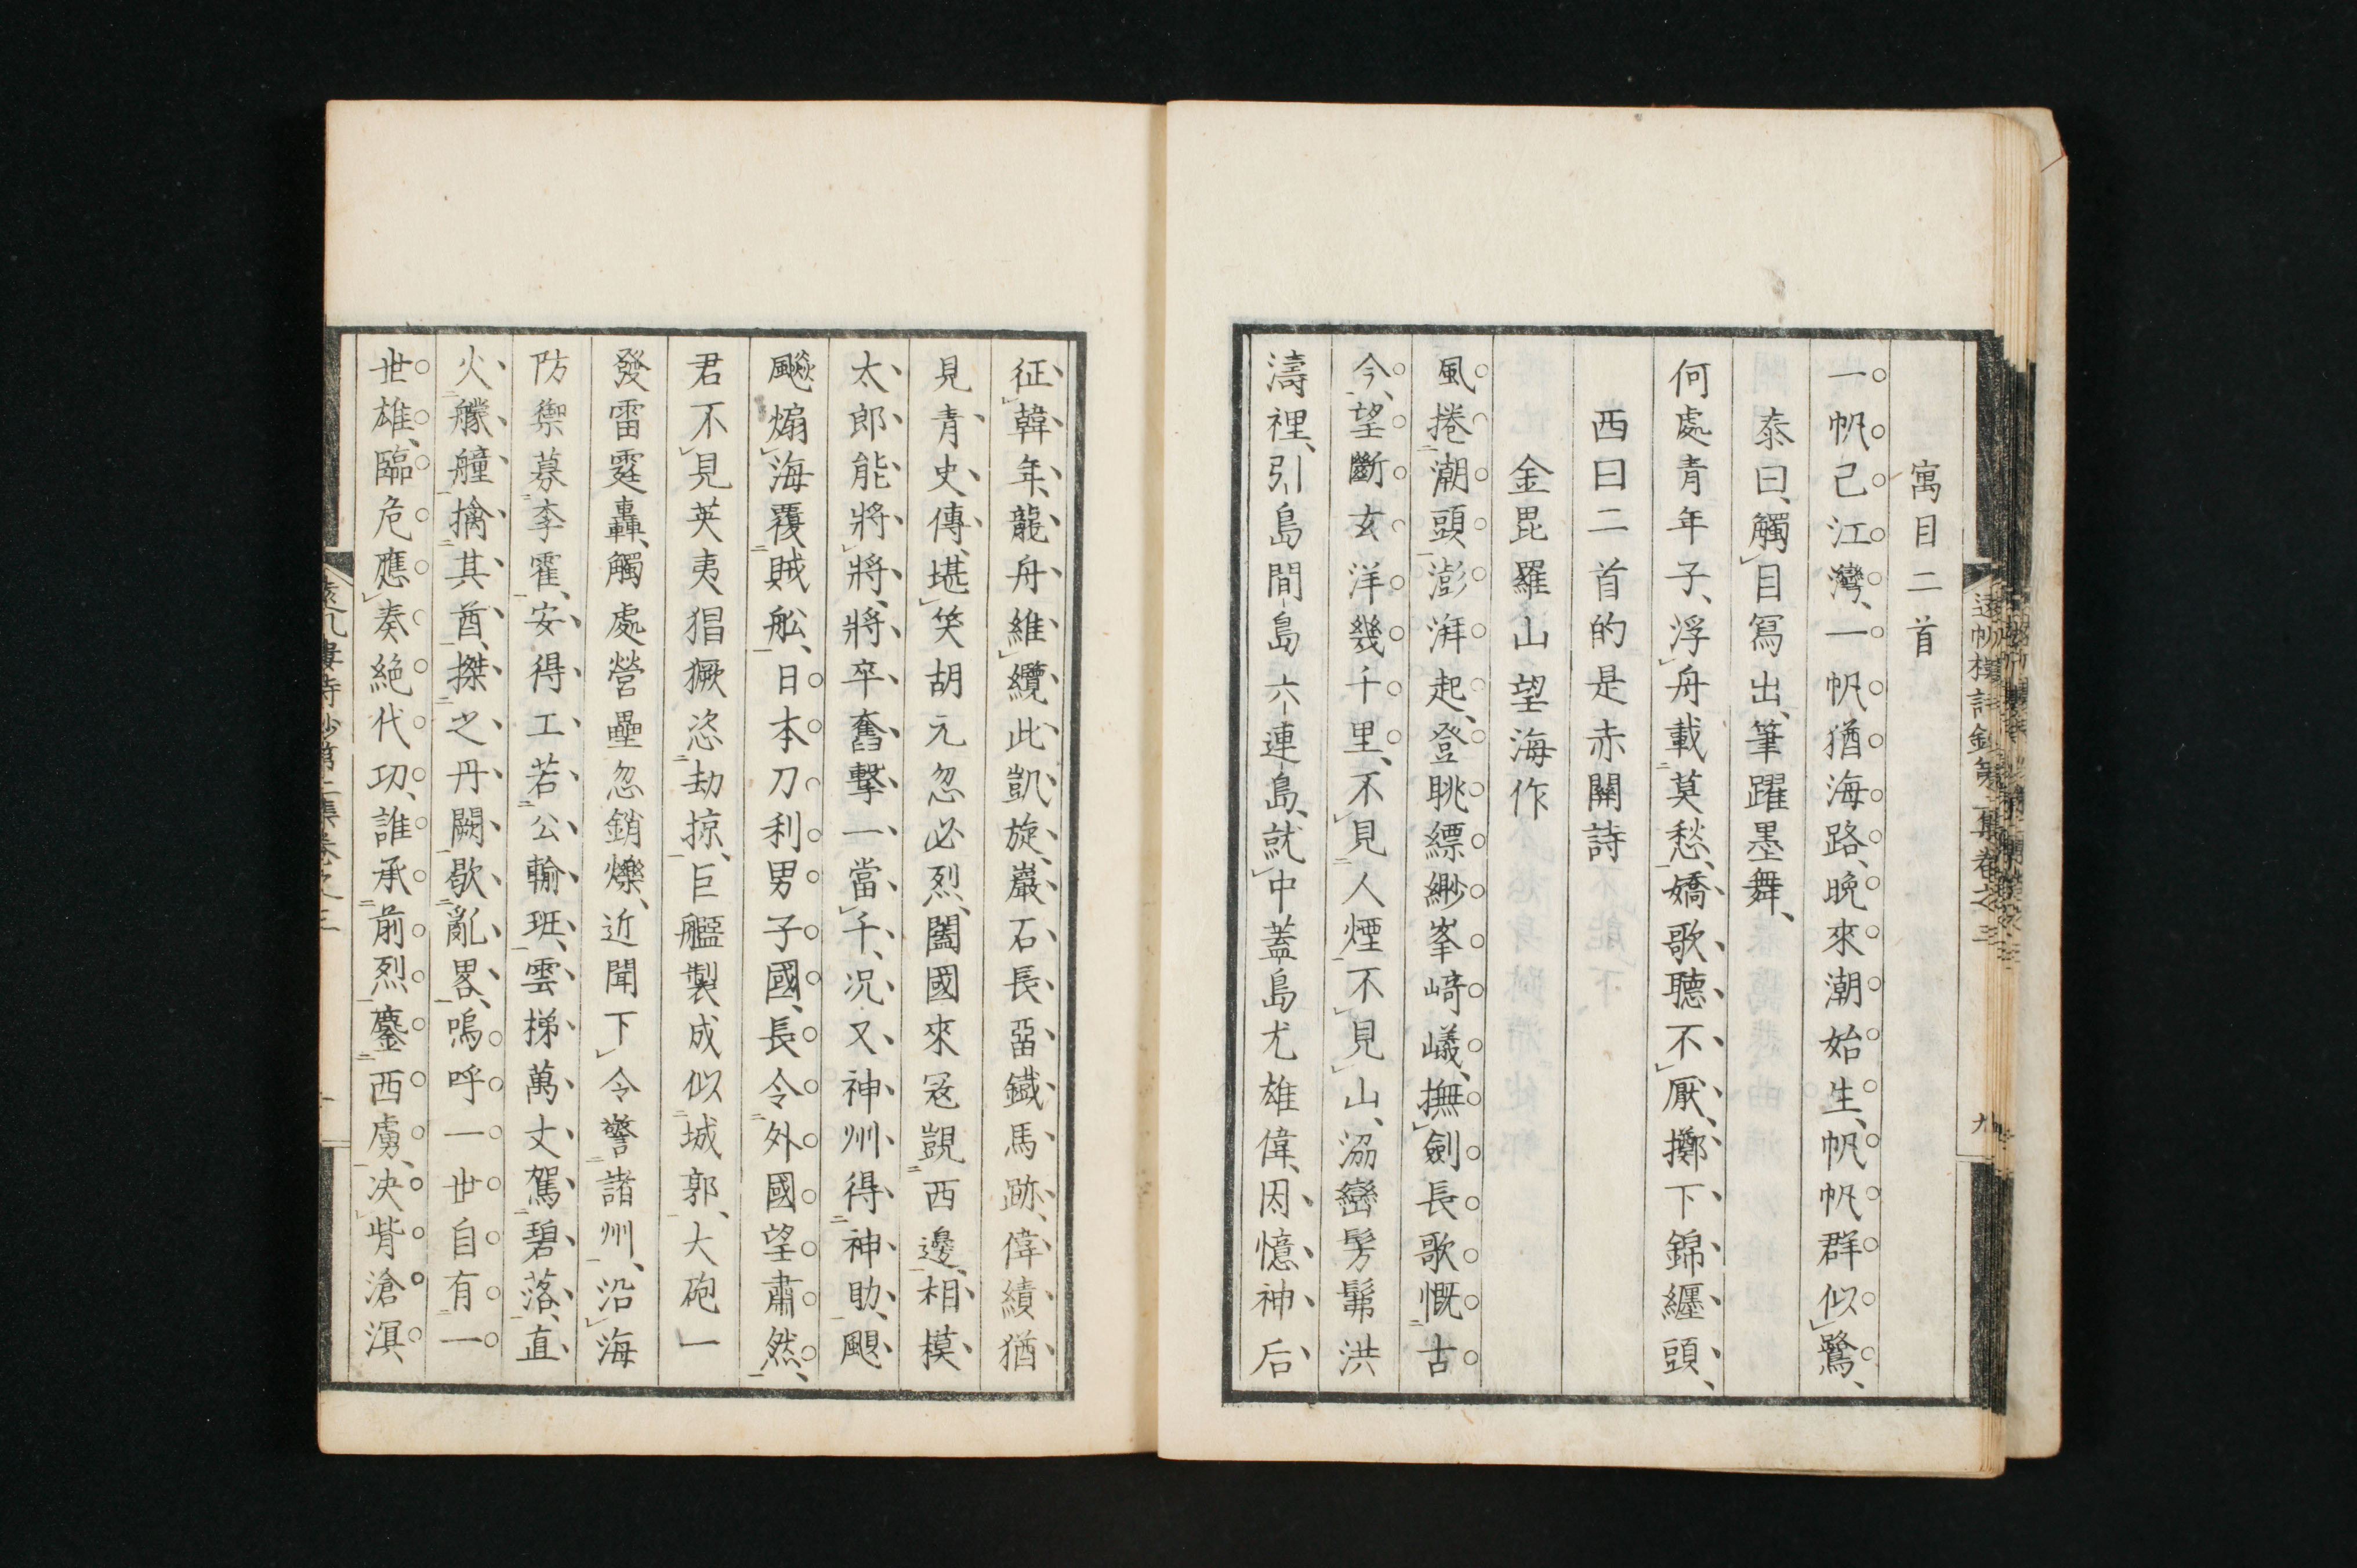 寓目二首
一帆已江灣、一帆猶海路、晩來潮始生、帆帆群似鷺、
泰曰、觸目寫出、筆躍墨舞、
何處青年子、浮舟載莫愁、嬌歌聽不厭、擲下錦纏頭、
西曰二首的是赤關詩
金毘羅山望海作
風捲潮頭澎湃起、登眺縹緲峯崎嶬、撫劍長歌慨古
今、望斷玄洋幾千里、不見人煙不見山、沿巒髣髴洪
濤裡、引島間島六連島、就中蓋島尤雄偉、因憶神后
征韓年、龍舟維纜此凱旋、巖石長畱鐵馬跡、偉績猶
見青史傳、堪笑胡元忽必烈、闔國來寇覬西邊、相模
太郎能將將、將卒奮擊一當千、况又神州得神助、颶
飈煽海覆賊舩、日本刀利男子國、長令外國望肅然、
君不見英夷猖獗恣劫掠、巨艦製成似城郭、大砲一
發雷霆轟、觸處營壘忽銷爍、近聞下令警諸州、沿海
防禦募李霍、安得工若公輸班、雲梯萬丈駕碧落、直
火艨艟擒其酋、搩之丹闕歇亂畧、嗚呼一世自有一
世雄、臨危應奏絕代功、誰承前烈鏖西虜、决眥滄溟、